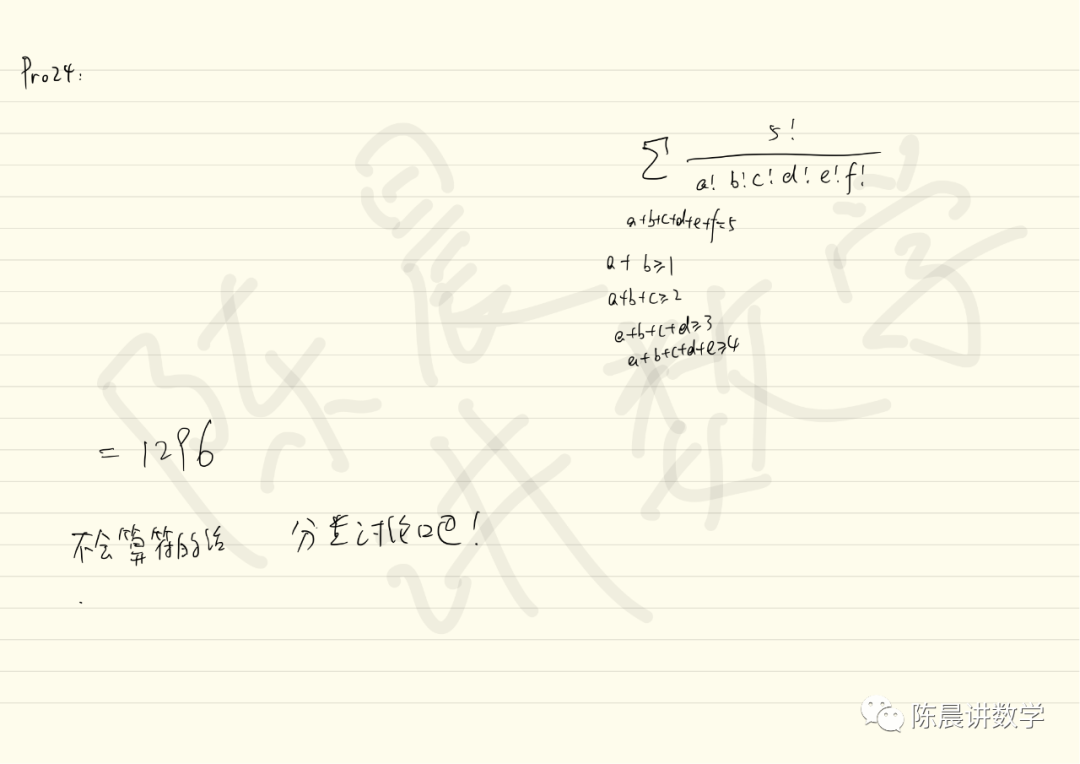 Pro24:
∑ 5! / a! b! c! d! e! f!
a+b+c+d+e+f=5
a+b≥1
a+b+c≥2
a+b+c+d≥3
a+b+c+d+e≥4
= 1296
不会算符的话 分类讨论吧!
陈晨讲数学
陈晨讲数学